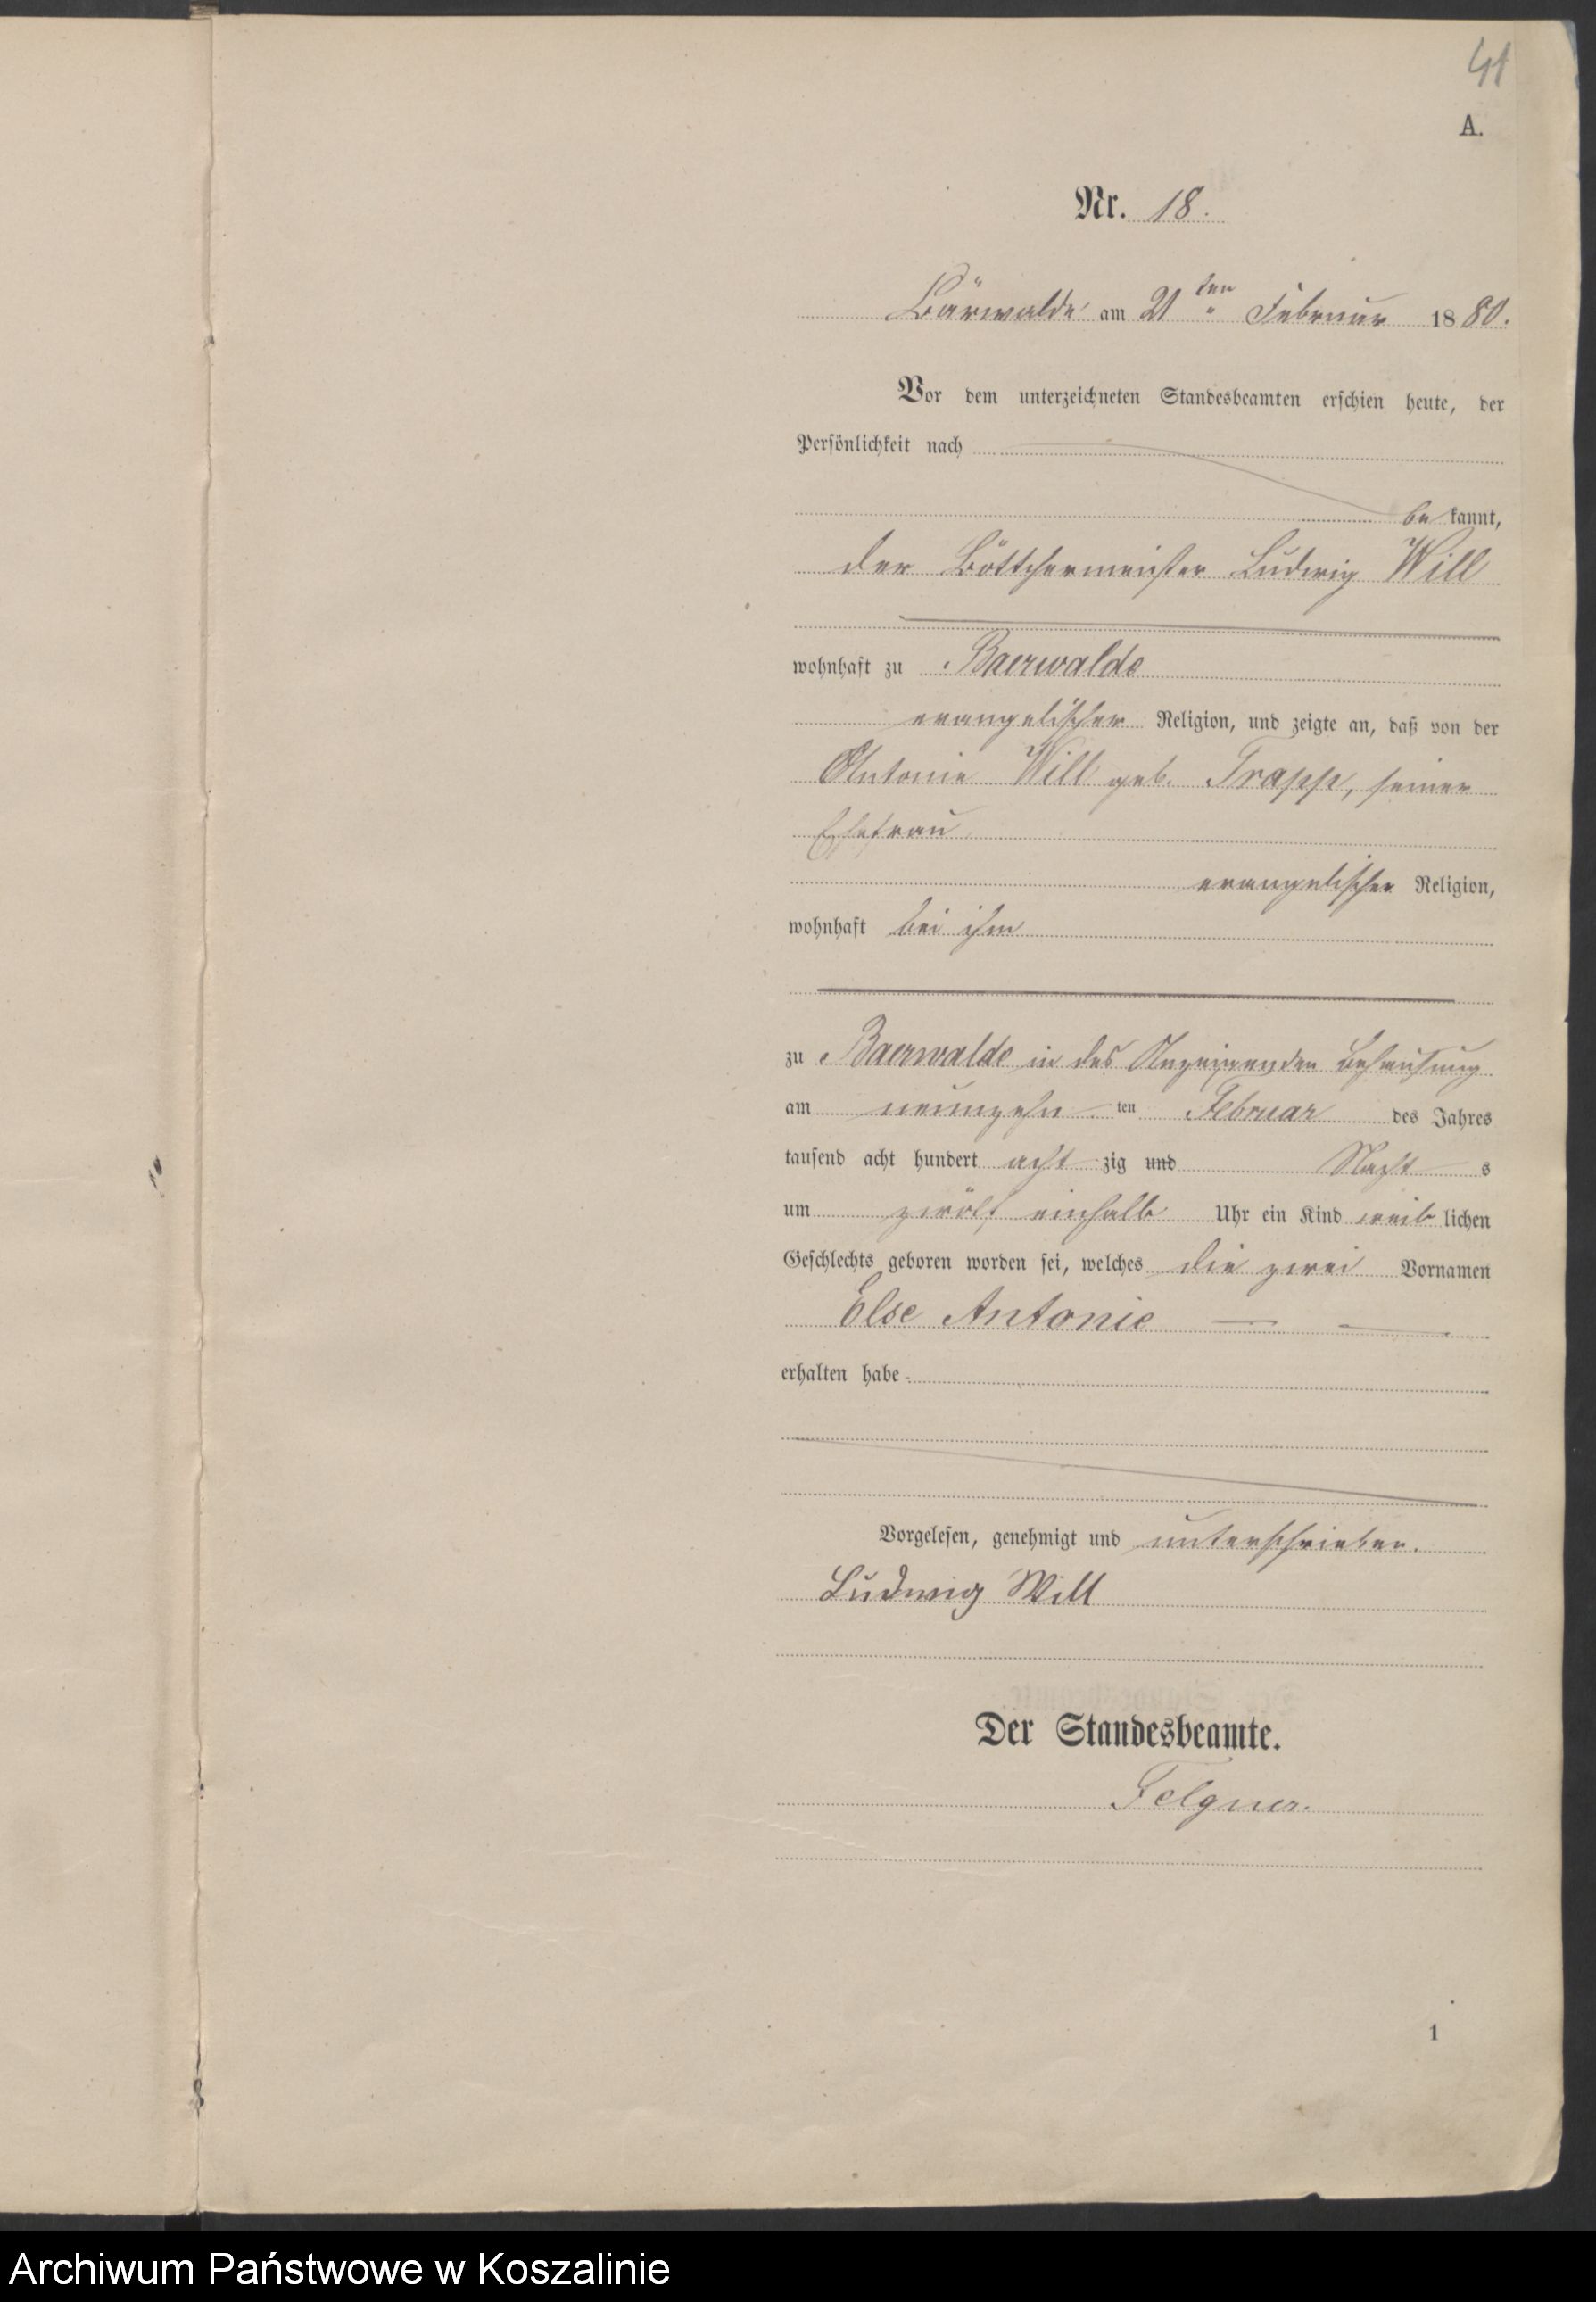 41
A.
Nr. 18.
Bärwalde am 21ten Februar 1880.
Vor dem unterzeichneten Standesbeamten erschien heute, der
Persönlichkeit nach
bekannt,
der Böttchermeister Ludwig Will
wohnhaft zu Baerwalde
evangelischer Religion, und zeigte an, daß von der
Antonie Will geb. Trapp, seiner
Ehefrau
evangelischer Religion,
wohnhaft bei ihm
zu Baerwalde in des Anzeigenden Behausung
am neunzehnten Februar des Jahres
tausend acht hundert achtzig und Nachts
um zwölf einhalb Uhr ein Kind weiblichen
Geschlechts geboren worden sei, welches die zwei Vornamen
Else Antonie
erhalten habe
Vorgelesen, genehmigt und unterschrieben.
Ludwig Will
Der Standesbeamte.
Felgner.
1
Archiwum Państwowe w Koszalinie